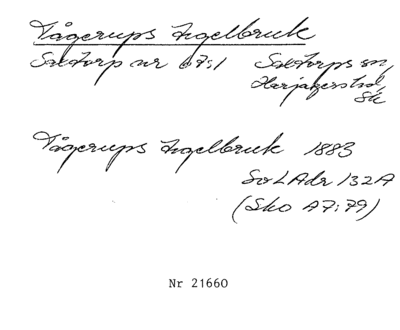 Tågerups Tegelbruk
Saxtorp nr 67:1 Saxtorps sn,
Harjagers hd,
Sk
Tågerups Tegelbruk 1883
Sv L Adr 132A
(Sko A7:79)
Nr 21660